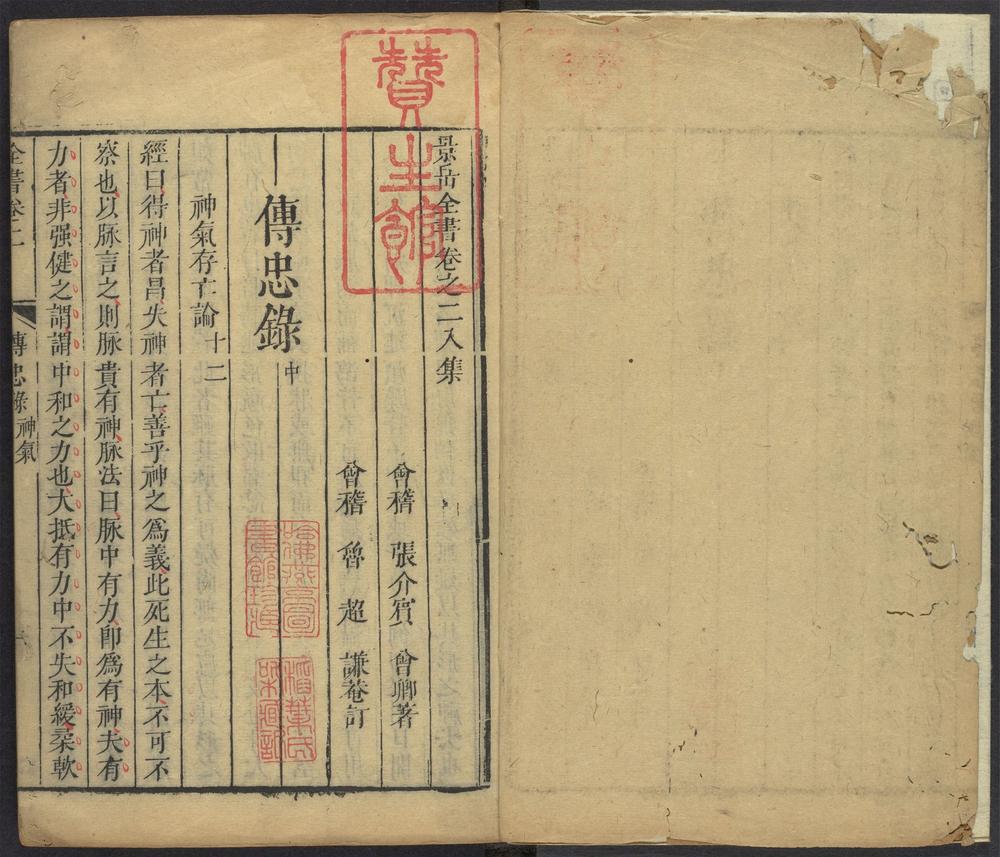 景岳全書卷之二入集
會稽 張介賓 會卿著
會稽 魯 超 謙菴訂
傳忠錄 中
神氣存亡論 十二
經曰得神者昌失神者亡善乎神之爲義此死生之本不可不
察也以脉言之則脉貴有神脉法曰脉中有力卽爲有神夫有
力者非强健之謂謂中和之力也大抵有力中不失和緩柔軟
全書卷二 傳忠錄 神氣
贊生館
稻葉氏